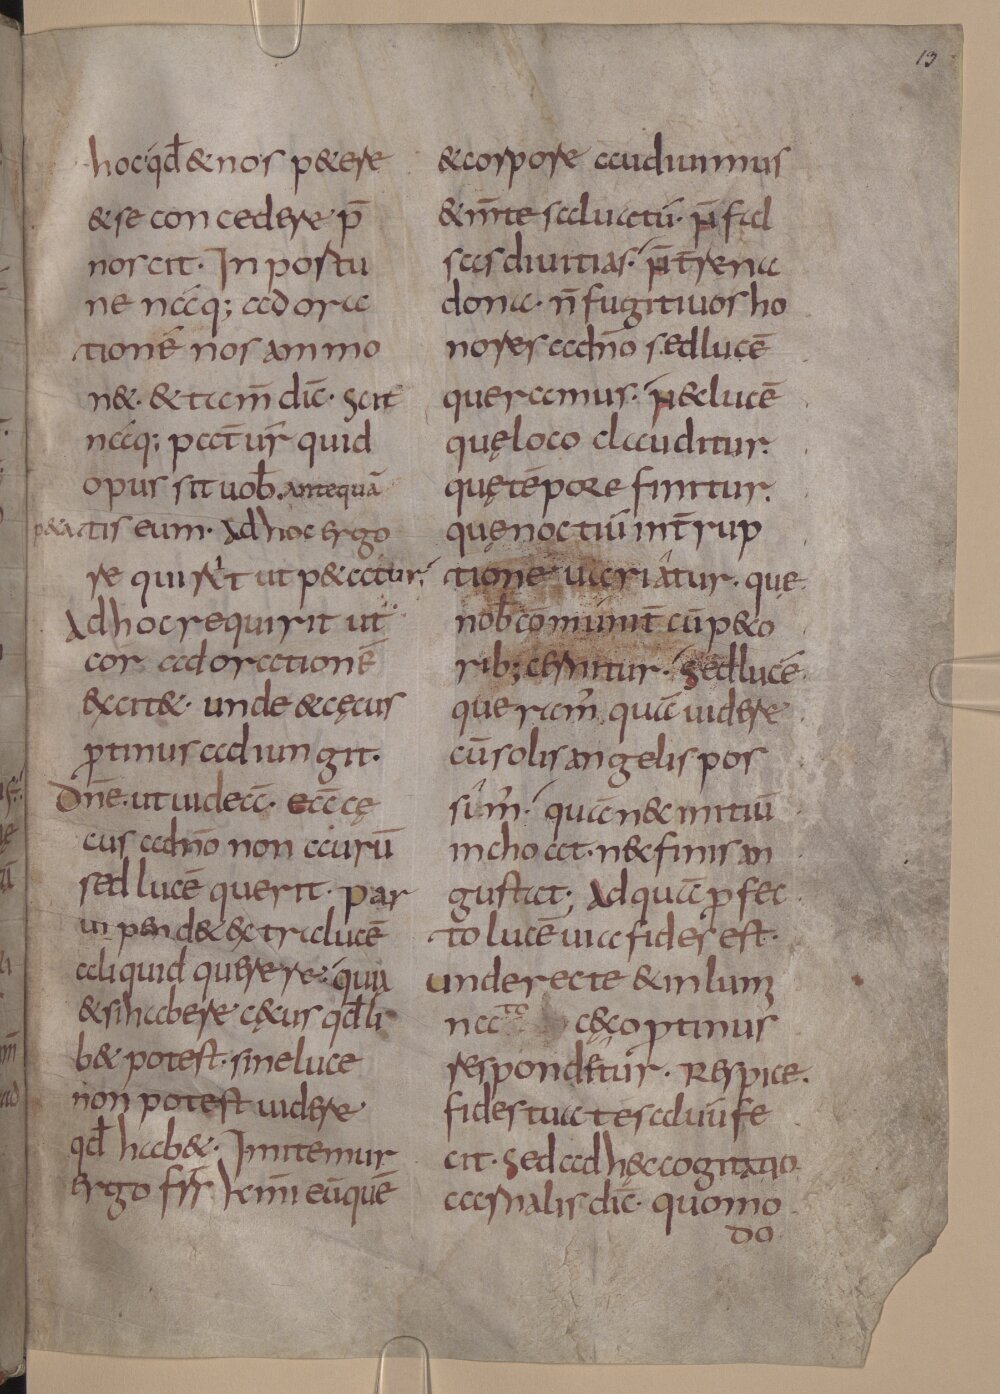 13
hoc qđ & nos p&ere
& se concedere p̄
noscit. Inportu
ne naq; ad ora
tionē nos ammo
n&. & tam̄ dic̄. Scit
naq; pat̄ ur̄ quid
opus sit uob̄. antequā
p&atis eum. Ad hoc ergo
requirit ut p&atur.
Ad hoc requirit ut
cor ad orationē
excit&. unde & cęcus
ꝓtinus adiungit.
Dn̄e. ut uideā. Ecce cę
cus a dn̄o non aurū
sed lucē querit. Par
ui pend& extra lucē
aliquid querere. quia
& si habere cęcus qđ li
b& potest. sine luce
non potest uidere
qđ hab&. Imitemur
ergo fr̄s k̄mi eū quē
& corpore audiuimus
& m̄te saluatū. n̄ fal
sas diuitias. n̄ t̄rena
dona. n̄ fugitiuos ho
nores a dn̄o sed lucē
queramus. n̄ & lucē
quę loco clauditur.
quę tēpore finitur.
quę noctiū int̄rup
tione uariatur. que
nob̄ com̄unit̄ cū peco
rib; cernitur. Sed lucē
queram̄ quā uidere
cū solis angelis pos
sim̄. quā n& initiū
inchoat. n& finis an
gustat; Ad quā ꝓfec
to lucē uia fides est.
unde recte & inlumi
nato cęco ꝓtinus
respondetur. Respice.
fides tua te saluū fe
cit. Sed ad hęc cogitatio
carnalis dic̄. quomo
do